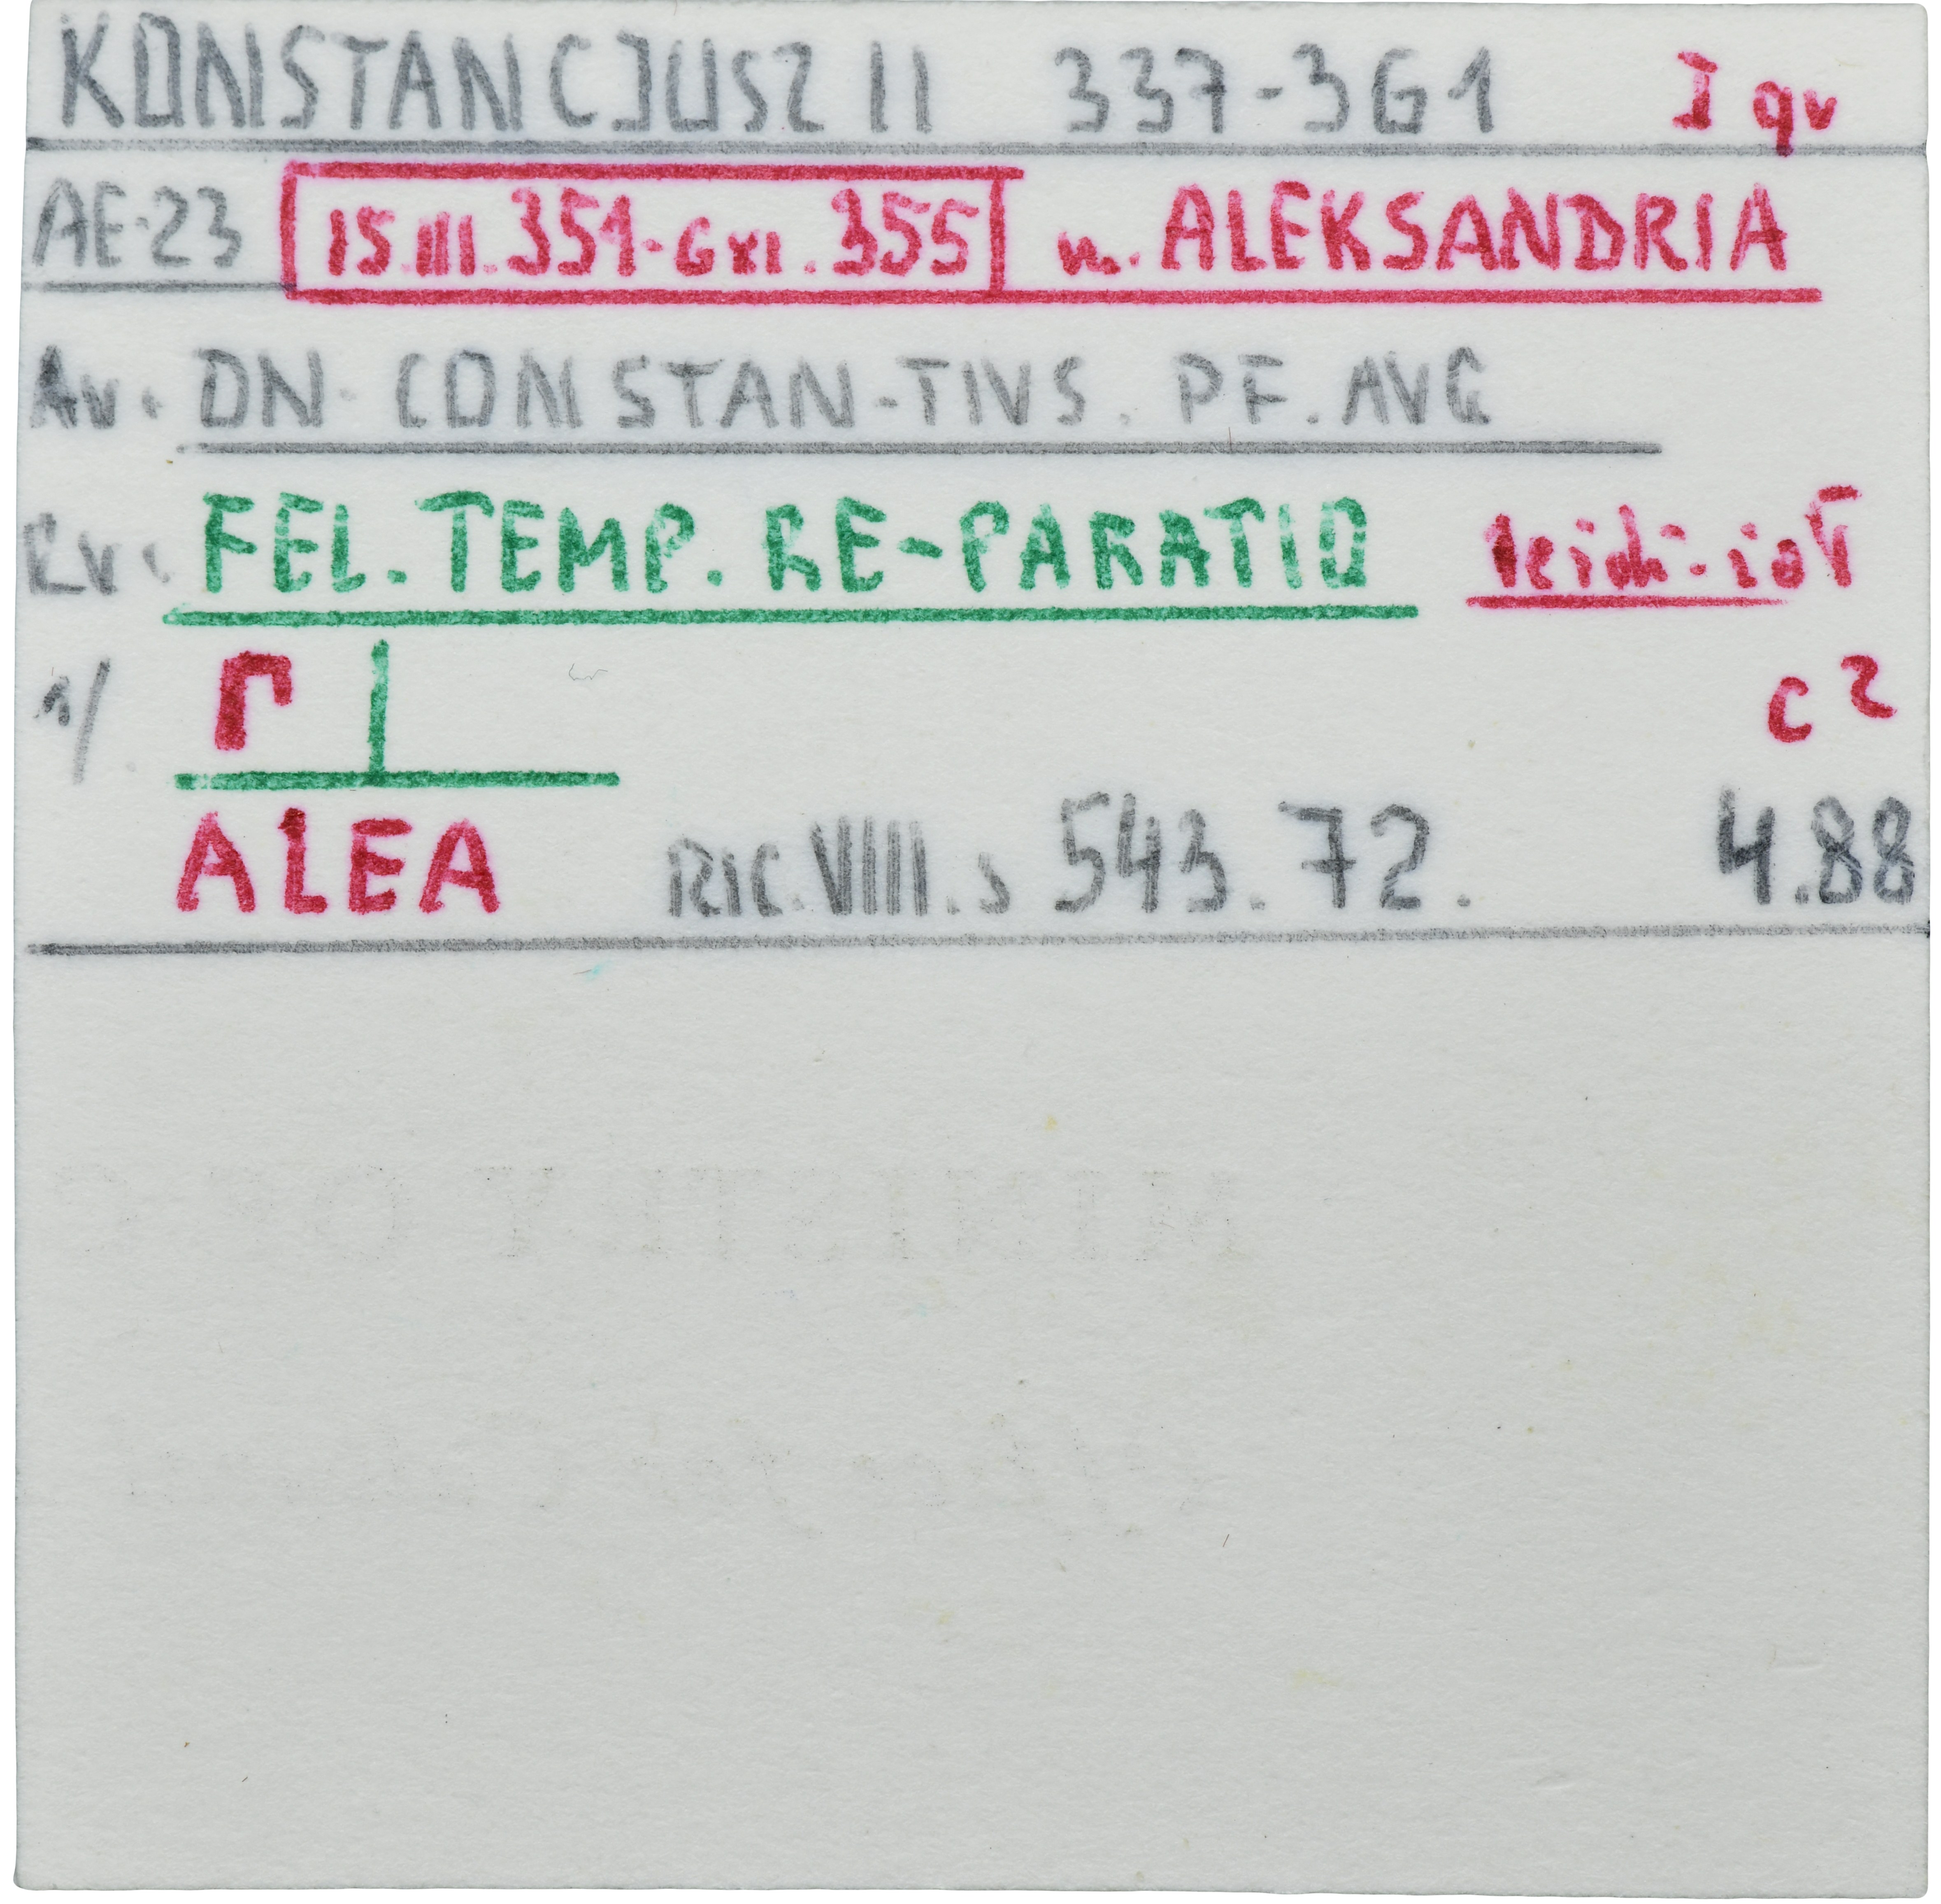 KONSTANCJUSZ II 337-361 I qv
AE-23 15.III.351-6XI.355 m. ALEKSANDRIA
Av. DN. CONSTAN-TIVS. PF. AVG
Rv. FEL.TEMP. RE-PARATIO
Γ c 2
ALEA RIC.VIII.s 543.72. 4.88